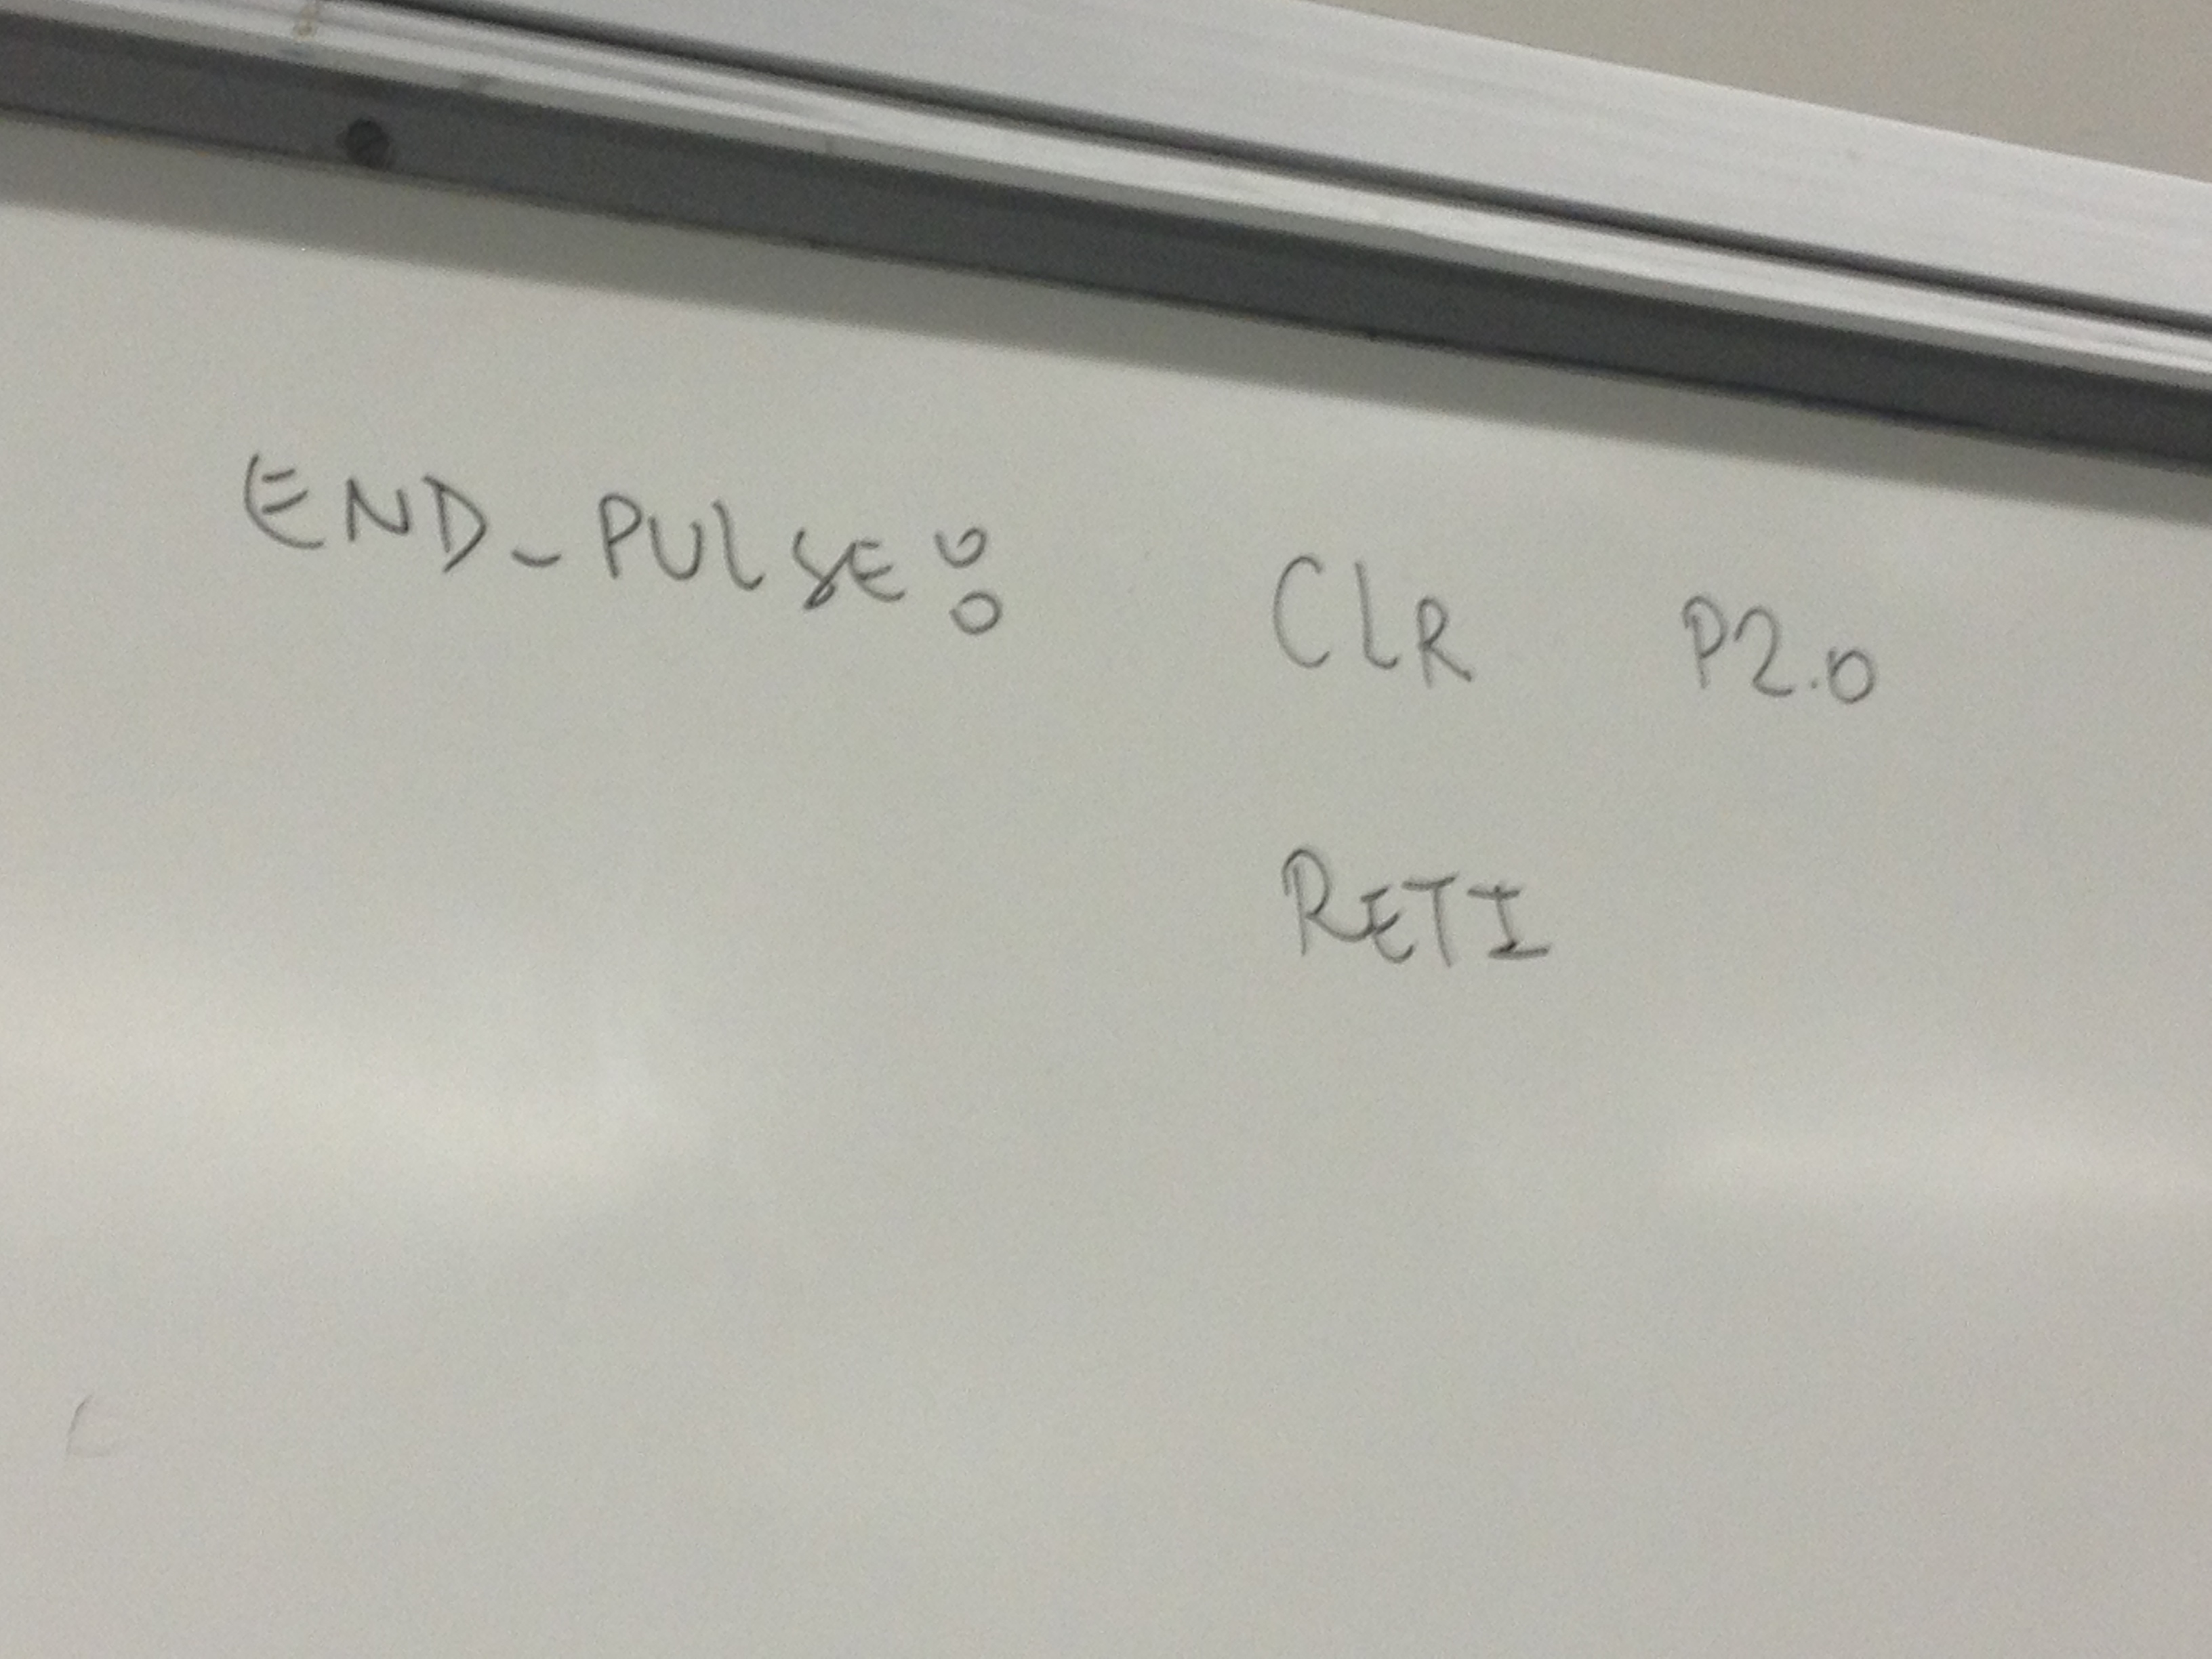 END_PULSE: CLR P2.0
RETI